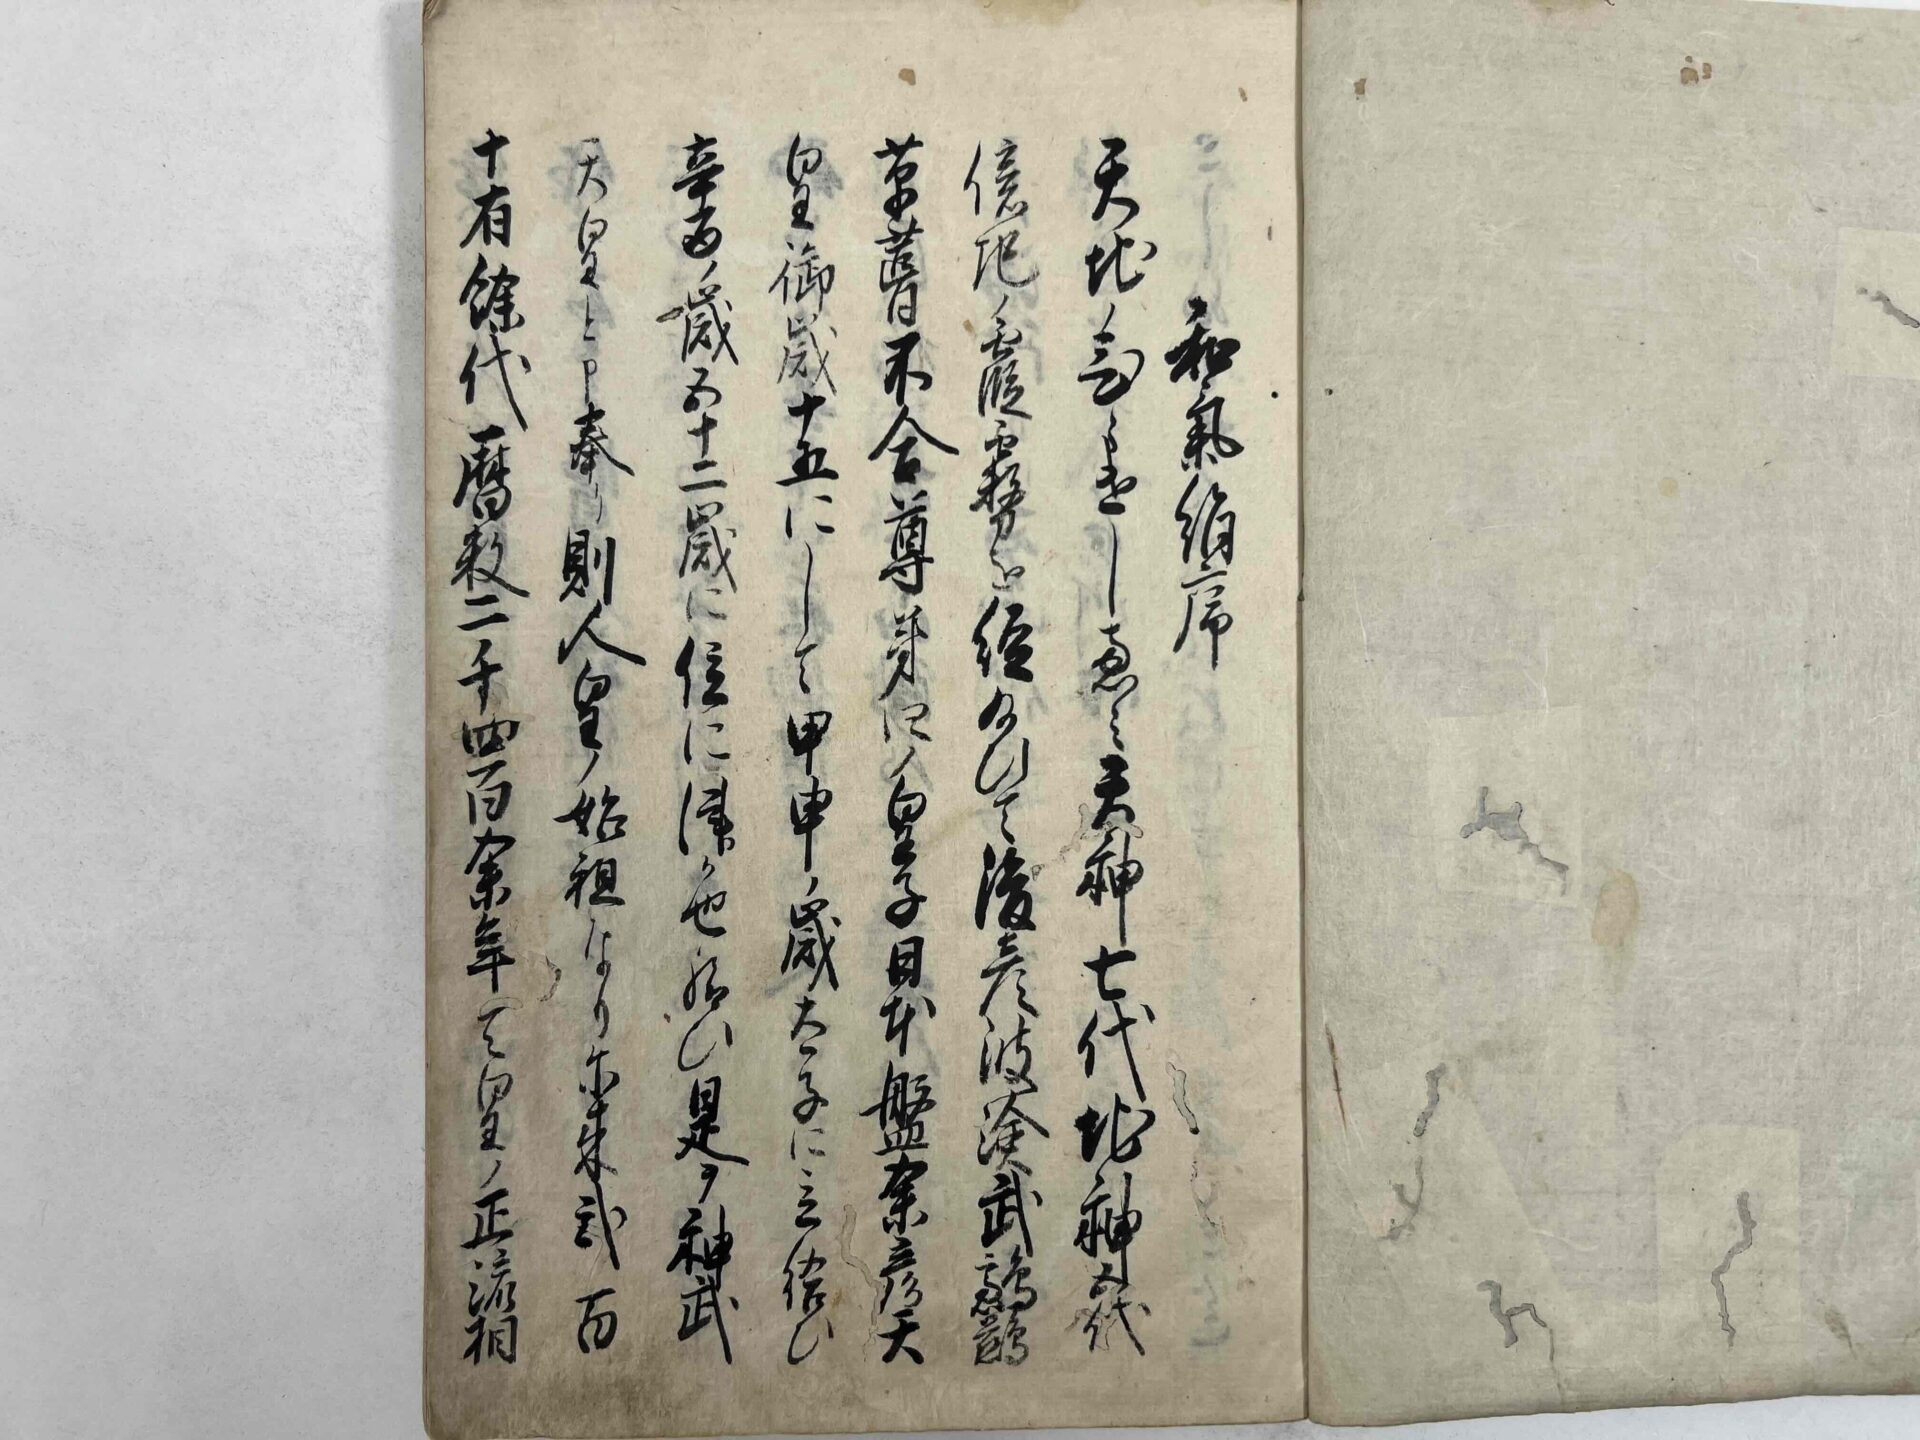 和氣絹序
天地ノ 天神七代地神五代
億 ノ霞霧を經 ひて後彦波瀲武鸕鶿
草葺不合尊第四ノ皇子日本盤余彦天
皇御歳十五にして甲申ノ歳太子に立給ひ
辛酉ノ歳五十二歳に位に津かせ給ひ是ヲ神武
天皇と申奉り則人皇ノ始祖なり尓来弐百
十有餘代暦数二千四百余年天皇ノ正流相